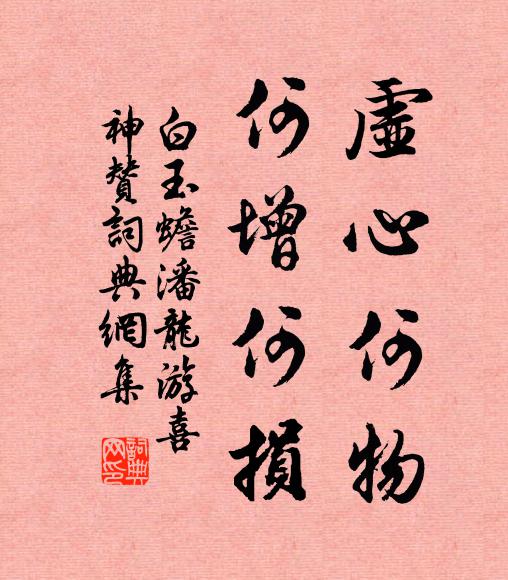 虛心何物
何增何損
白玉蟾潘龍游喜
神贊詞典網集
詞典
网印